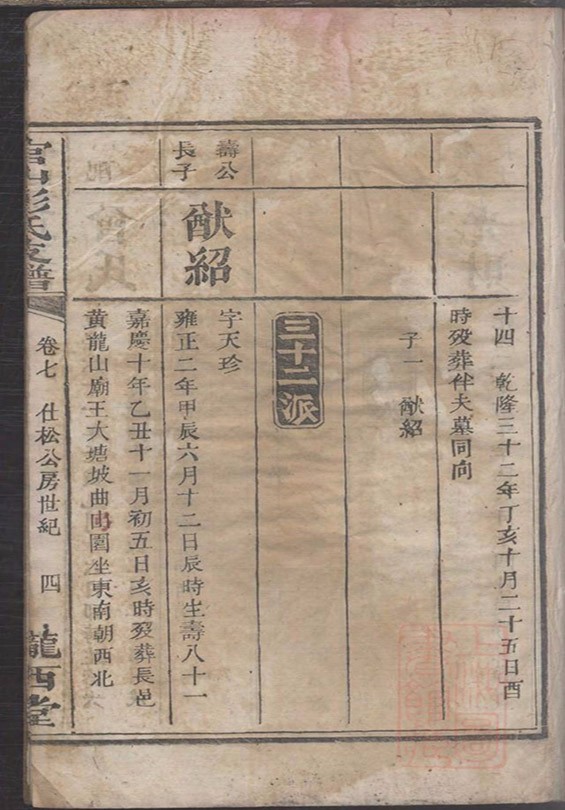 十四 乾隆三十二年丁亥十月二十五日酉
時歿葬伴夫墓同向
子一 猷紹
三十二派
壽公
長子
猷紹
字天珍
雍正二年甲辰六月十二日辰時生壽八十一
嘉慶十年乙丑十一月初五日亥時歿葬長邑
黃龍山廟王大塘坡曲園坐東南朝西北
官山彭氏支譜
卷七 仕松公房世紀 四
隴西堂